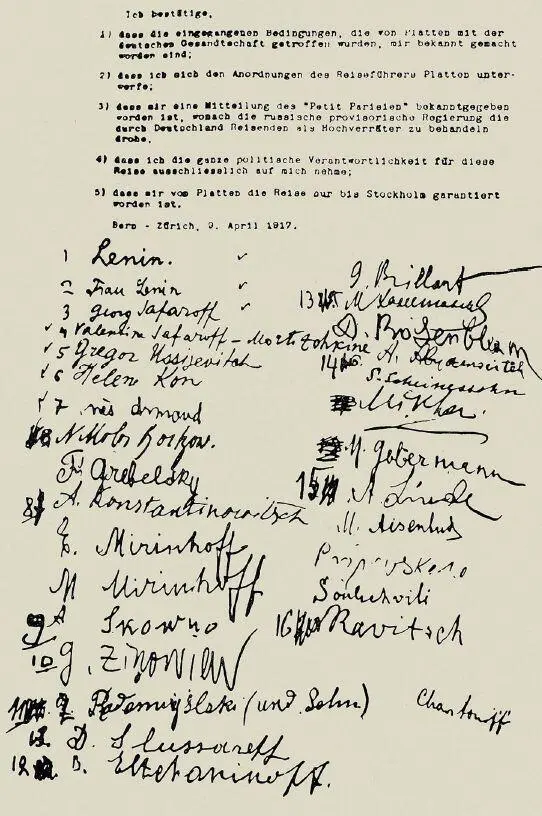 Ich bestätige,
1) dass die eingegangenen Bedingungen, die von Platten mit der
deutschen Gesandtschaft getroffen wurden, mir bekannt gemacht
worden sind;
2) dass ich mich den Anordnungen des Reiseführers Platten unter-
werfe;
3) dass mir eine Mitteilung des "Petit Parisien" bekanntgegeben
worden ist, wonach die russische provisorische Regierung die
durch Deutschland Reisenden als Hochverräter zu behandeln
drohe.
4) dass ich die ganze politische Verantwortlichkeit für diese
Reise ausschliesslich auf mich nehme;
5) dass mir von Platten die Reise nur bis Stockholm garantiert
worden ist.
Bern - Zürich, 9. April 1917.
1 Lenin. ✓
2 Frau Lenin ✓
3 Georg Safaroff ✓
✓ 4 Valentina Safaroff - Mortotchkine
✓ 5 Gregor Ussievitch
✓ 6 Helene Kon
✓ 7 Inès Armand
Nikolai Boitzow.
F. Grebelsky
A. Konstantinowitsch
E. Mirinhoff
M Mirinhoff
9 A Skowno
10 G. Zinowiew
Radomislski (und Sohn)
D. Slussareff
12 B. Eltchaninoff.
G. Brillant
13
D. Rosenblum
14
S. Scheinessohn
M. Gobermann
15 A Linde
M. Aisenhud
Pripevskaia
Soulischvili
16 Ravitsch
Charitonoff